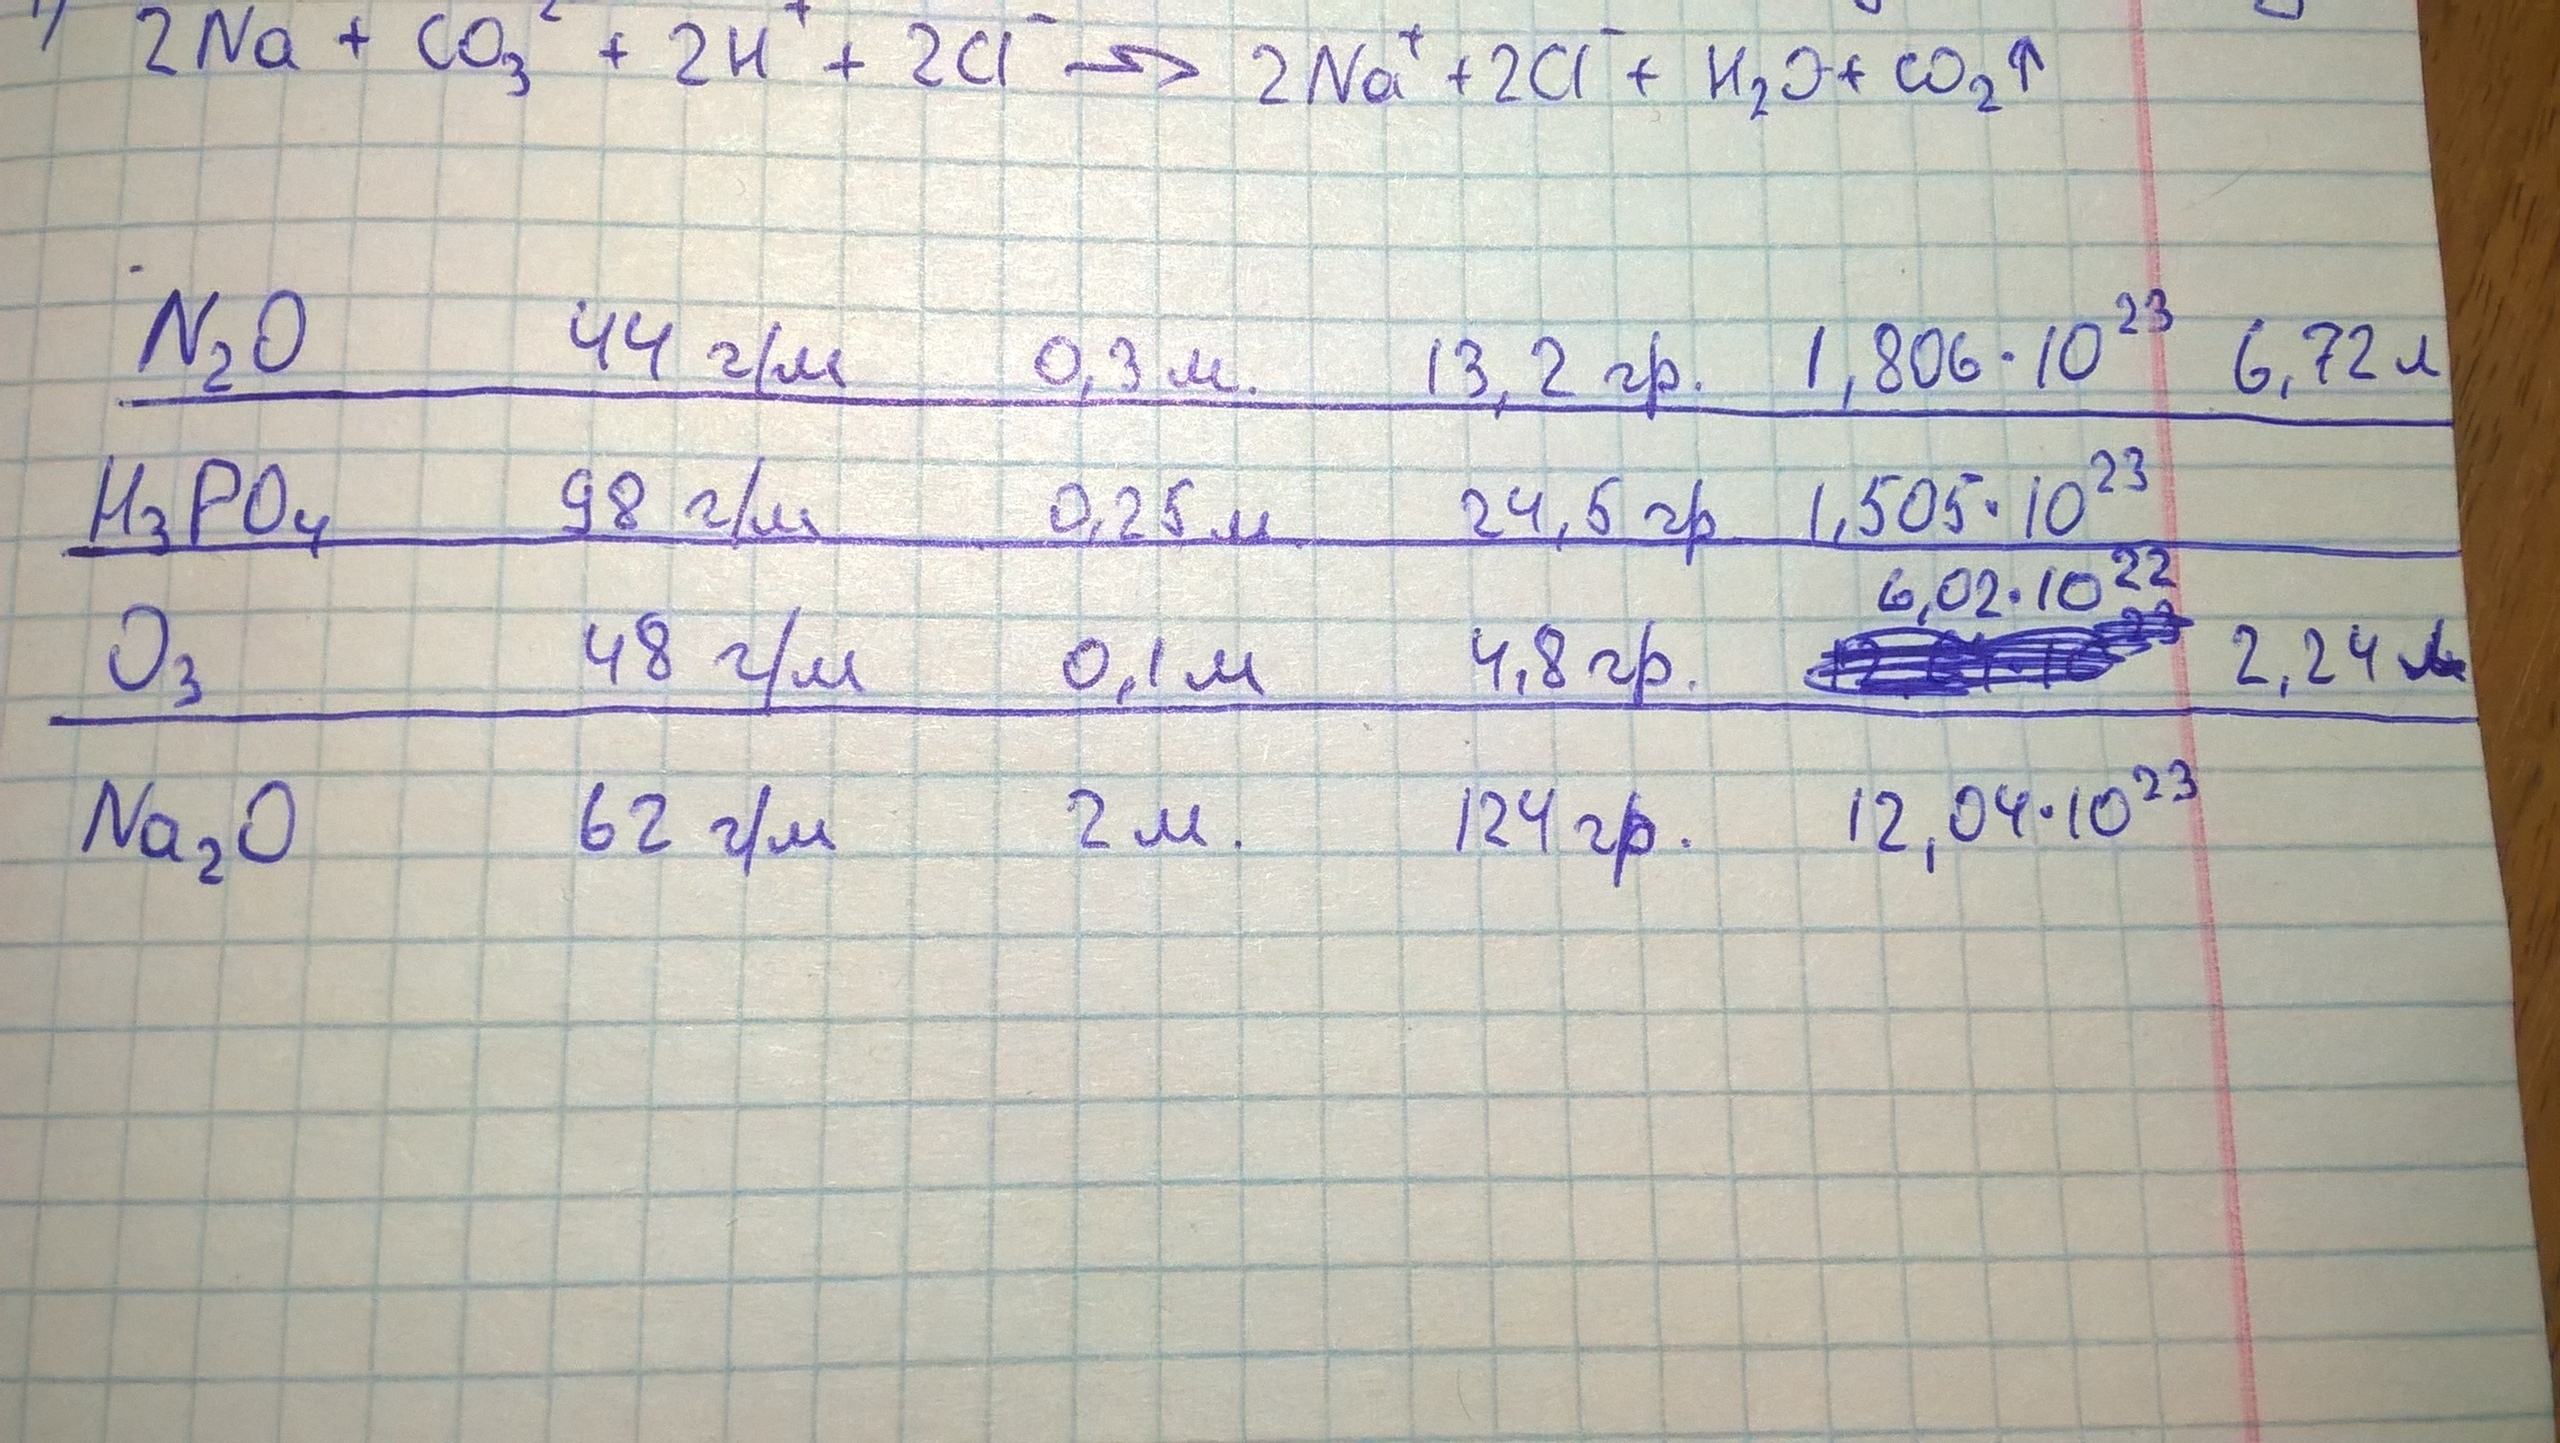 2Na + CO₃² + 2H⁺ + 2Cl⁻ → 2Na⁺ + 2Cl⁻ + H₂O + CO₂↑
N₂O 44 г/м 0,3 м. 13,2 гр. 1,806·10²³ 6,72 л
H₃PO₄ 98 г/м 0,25 м. 24,5 гр 1,505·10²³
6,02·10²²
O₃ 48 г/м 0,1 м 4,8 гр. 2,24 л
Na₂O 62 г/м 2 м. 124 гр. 12,04·10²³